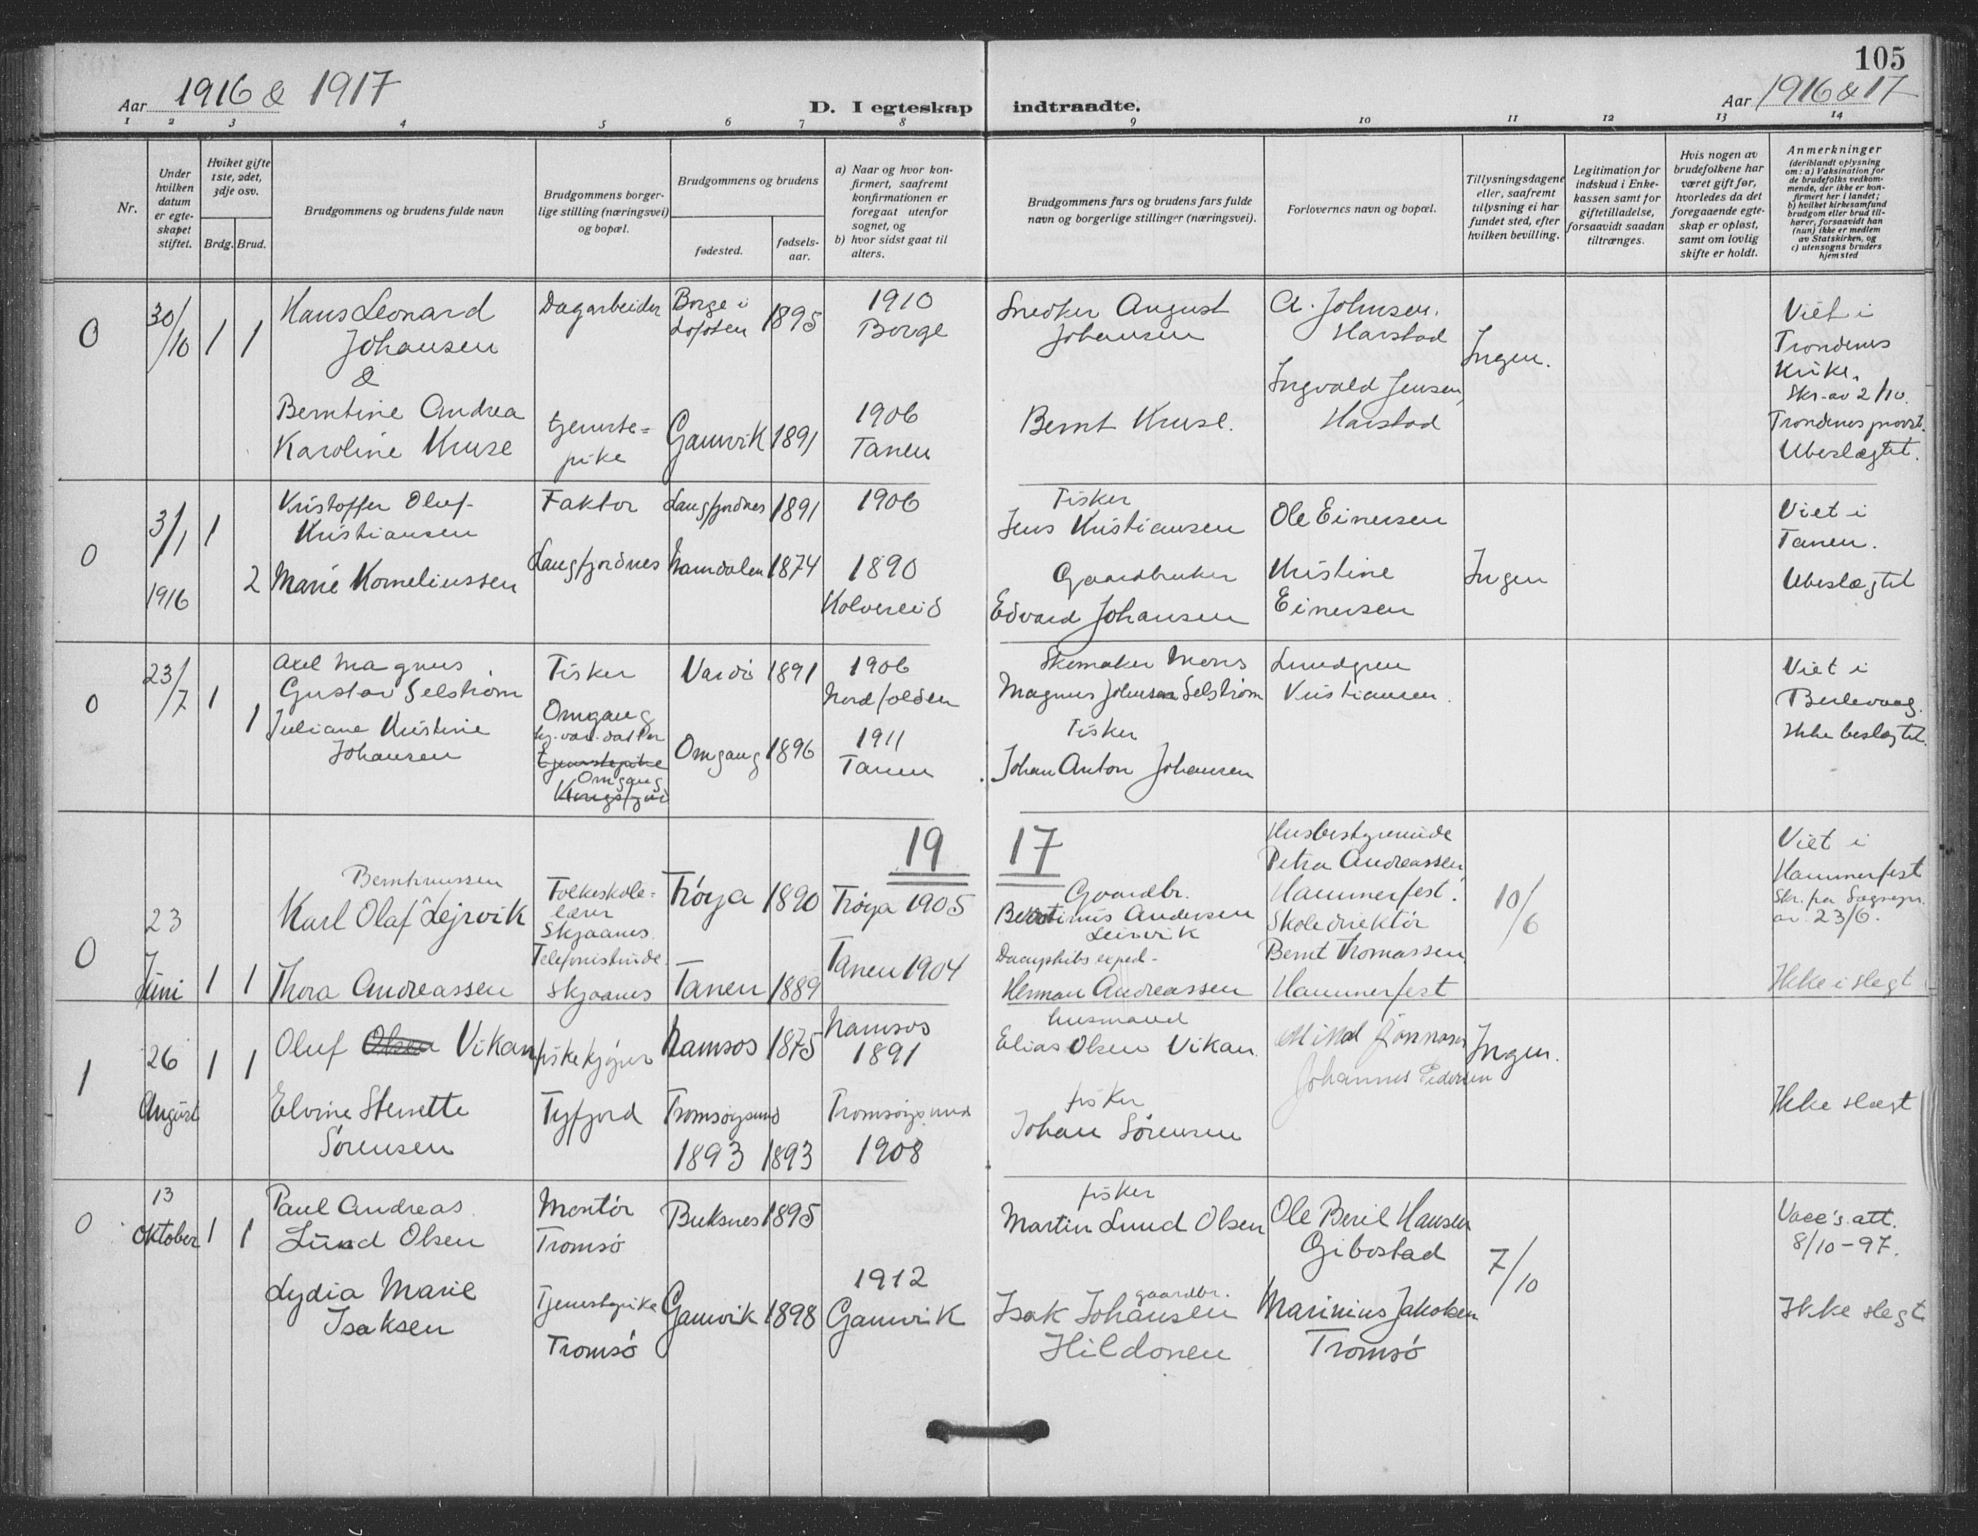 105
Aar 1916 & 1917
D. I egteskap indtraadte.
Aar 1916 & 17
1 2 3 4 5 6 7 8 9 10 11 12 13 14
Nr.
Under hvilken datum er egteskapet stiftet.
Hviket gifte 1ste, 2det, 3dje osv.
Brdg. Brud.
Brudgommens og brudens fulde navn
Brudgommens borgerlige stilling (næringsvei) og bopæl.
Brudgommens og brudens
fødested.
fødselsaar.
a) Naar og hvor konfirmert, saafremt konfirmationen er foregaat utenfor sognet, og
b) hvor sidst gaat til alters.
Brudgommens fars og brudens fars fulde navn og borgerlige stillinger (næringsvei).
Forlovernes navn og bopæl.
Tillysningsdagene eller, saafremt tillysning ei har fundet sted, efter hvilken bevilling.
Legitimation for indskud i Enkekassen samt for giftetilladelse, forsaavidt saadan tiltrænges.
Hvis nogen av brudefolkene har været gift før, hvorledes da det foregaaende egteskap er opløst, samt om lovlig skifte er holdt.
Anmerkninger
(deriblandt oplysning om: a) Vaksination for de brudefolks vedkommende, der ikke er konfirmert her i landet;
b) hvilket kirkesamfund brudgom eller brud tilhører, forsaavidt han (nun) ikke er medlem av Statskirken, og
c) utensogns bruders hjemsted
0
30/10
1 1
Hans Leonard
Johansen
&
Berntine Andrea
Karoline Kruse
Dagarbeider
tjenste=
pike
Borge i
Lofoten 1895
Gamvik 1891
1910
Borge
1906
Tanen
Snedker August
Johansen
Bernt Kruse.
A. Johnsen.
Harstad
Ingvald Jensen,
Harstad
Ingen.
Viet i
Trondenes
Kirke.
Skr. av 2/10.
Trondenes provst.
Ubeslægtet.
0
3/1
1916
1
2
Kristoffer Oluf
Kristiansen
Marie Korneliussen
Faktor
Langfjordnes
Langfjordnes 1891
Namdalen 1874
1906
1890
Kolvereid
Fisker
Jens Kristiansen
Gaardbruker
Edvard Johansen
Ole Einersen
Kristine
Einersen
Ingen
Viet i
Tanen.
Ubeslægtet
0
23/7
1
1
Axel Magnus
Gustav Selstrøm
Juliane Kristine
Johansen
Fisker
Omgang
tjenstepike
Omgang
Kongsfjord
Vardö 1891
Omgang 1896
1906
Nordfolden
1911
Tanen
Skomaker Mons
Magnus Johnsen Selstrøm
Fisker
Johan Anton Johansen
Lundgren
Kristiansen.
Viet i
Berlevaag.
Ikke beslægtet.
19 17
0
23
Juni
1 1
Berntinussen
Karl Olaf Lejrvik
Thora Andreassen
Folkeskole-
lærer
Skjaanes.
Telefonistinde.
Skjaanes
Frøya 1890
Tanen 1889
Frøya 1905
Tanen 1904
Gaardbr.
Berntinus Andersen
Leirvik
Dampskibsexped-
Herman Andreassen
Husbestyrerinde
Petra Andreassen
Hammerfest.
Skoledirektör
Bernt Thomassen
Hammerfest
10/6
Viet i
Hammerfest
Skr. fra Sognepr.
av 23/6.
Ikke i slegt
1
26
August
1 1
Oluf Olsen Vikan
Elvine Stenette
Sørensen
fiskekjøper
Tyfjord
Namsos 1875
Tromsøysund
1893 1893
Namsos
1891
Tromsøysund
1908
husmand
Elias Olsen Vikan.
fisker
Johan Sørensen
Johannes Pedersen
Ingen.
Ikke slægt
0
13
Oktober
1 1
Paul Andreas
Lund Olsen
Lydia Marie
Isaksen
Montör
Tromsø
Tjenestepike
Tromsø
Buksnes 1895
Gamvik 1898
1912
Gamvik
fisker
Martin Lund Olsen
gaardbr.
Isak Johansen
Hildonen
Ole Beril Hansen
Gibostad
Marinius Jakobsen
Tromsø
7/10
Vacc's. att.
8/10-97.
Ikke slegt